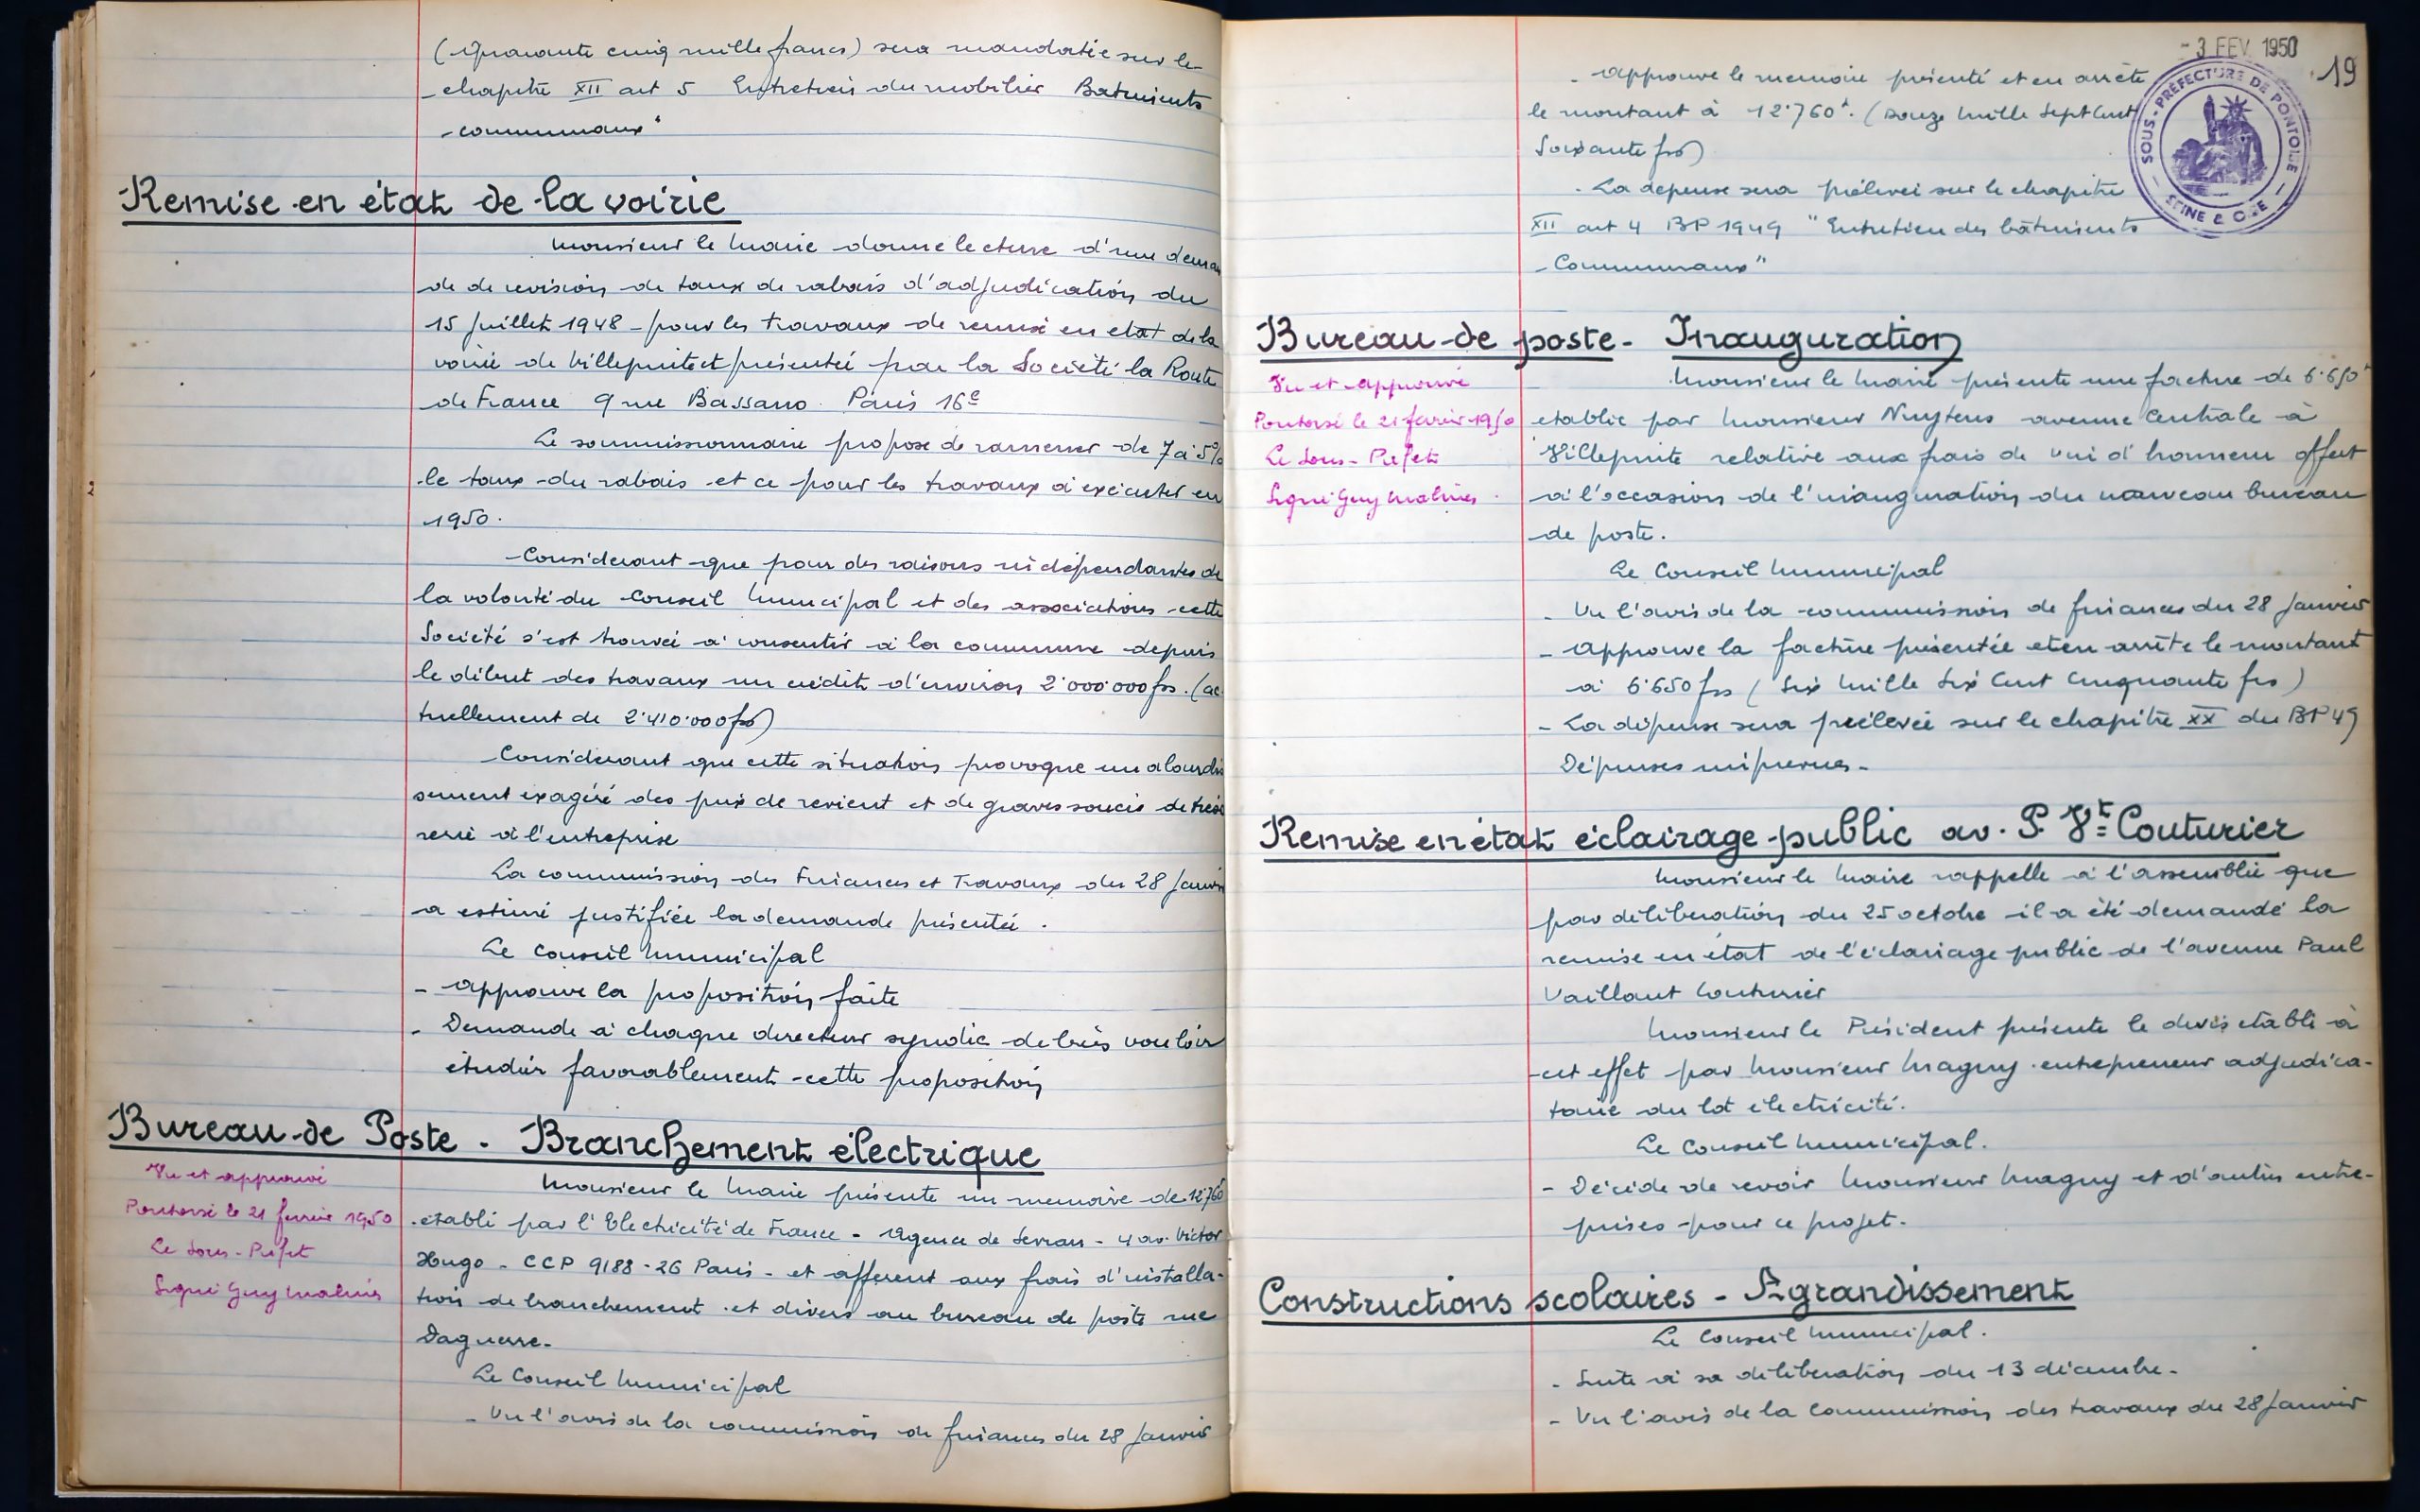 (Quarante cinq mille francs) sera mandatée sur le
chapitre XII art 5 Entretien du mobilier Batiments
communaux"
Remise en état de la voirie
Monsieur le Maire donne lecture d'une deman
de de revision de taux de rabais d'adjudication du
15 juillet 1948 - pour les travaux de remise en etat de la
voirie de Villepinte et présentée par la Société la Route
de France 9 rue Bassano. Paris 16e
Le soumissionnaire propose de ramener de 7 à 5%
le taux du rabais et ce pour les travaux à exécuter en
1950.
Considerant que pour des raisons indépendantes de
la volonté du Conseil Municipal et des associations cette
Société s'est trouvée à consentir à la commune depuis
le début des travaux un crédit d'environ 2.000.000 frs. (ac
tuellement de 2.410.000 frs)
Considerant que cette situation provoque un alourdis
sement exagéré des prix de revient et de graves soucis de tréso
rerie à l'entreprise
La commission des Finances et Travaux du 28 Janvier
a estimé justifiée la demande présentée.
Le Conseil Municipal
- approuve la proposition faite
- Demande à chaque directeur syndic de bien vouloir
étudier favorablement cette proposition
Bureau de Poste - Branchement électrique
Vu et approuvé
Pontoise le 21 fevrier 1950
Le Sous-Préfet
Signé Guy Malines
Monsieur le Maire présente un memoire de 12.760f
établi par l'Electricité de France - Agence de Sevran - 4 av. Victor
Hugo - CCP 9188-26 Paris - et afferent aux frais d'installa-
tion de branchement et divers au bureau de poste rue
Daguerre.
Le Conseil Municipal
- Vu l'avis de la commission de finances du 28 Janvier
- 3 FEV. 1950
19
SOUS-PREFECTURE DE PONTOISE
SEINE & OISE
- approuve le memoire présenté et en arrête
le montant à 12.760f. (Douze Mille Sept Cent
Soixante frs)
- La depense sera prélevée sur le chapitre
XII art 4 BP 1949 "Entretien des bâtiments
Communaux"
Bureau de poste - Inauguration
Vu et approuvé
Pontoise le 21 fevrier 1950
Le Sous-Préfet
Signé Guy Malines
Monsieur le Maire présente une facture de 6.650f
etablie par Monsieur Nuytens avenue Centrale à
Villepinte relative aux frais de vin d'honneur offert
à l'occasion de l'inauguration du nouveau bureau
de poste.
Le Conseil Municipal
- Vu l'avis de la commission de finances du 28 Janvier
- Approuve la facture présentée et en arrête le montant
à 6.650 frs (Six Mille Six Cent Cinquante frs)
- La dépense sera prélevée sur le chapitre XX du BP 49
Dépenses imprevues -
Remise en état éclairage public av. P. Vt Couturier
Monsieur le Maire rappelle à l'assemblée que
par déliberation du 25 octobre il a été demandé la
remise en état de l'éclariage public de l'avenue Paul
Vaillant Couturier
Monsieur le Président présente le devis etabli à
cet effet par Monsieur Magny entrepreneur adjudica-
taire du lot électricité.
Le Conseil Municipal.
- Décide de revoir Monsieur Magny et d'autres entre-
prises pour ce projet.
Constructions scolaires - Agrandissement
Le Conseil Municipal.
- Suite à sa déliberation du 13 décembre.
- Vu l'avis de la Commission des travaux du 28 Janvier